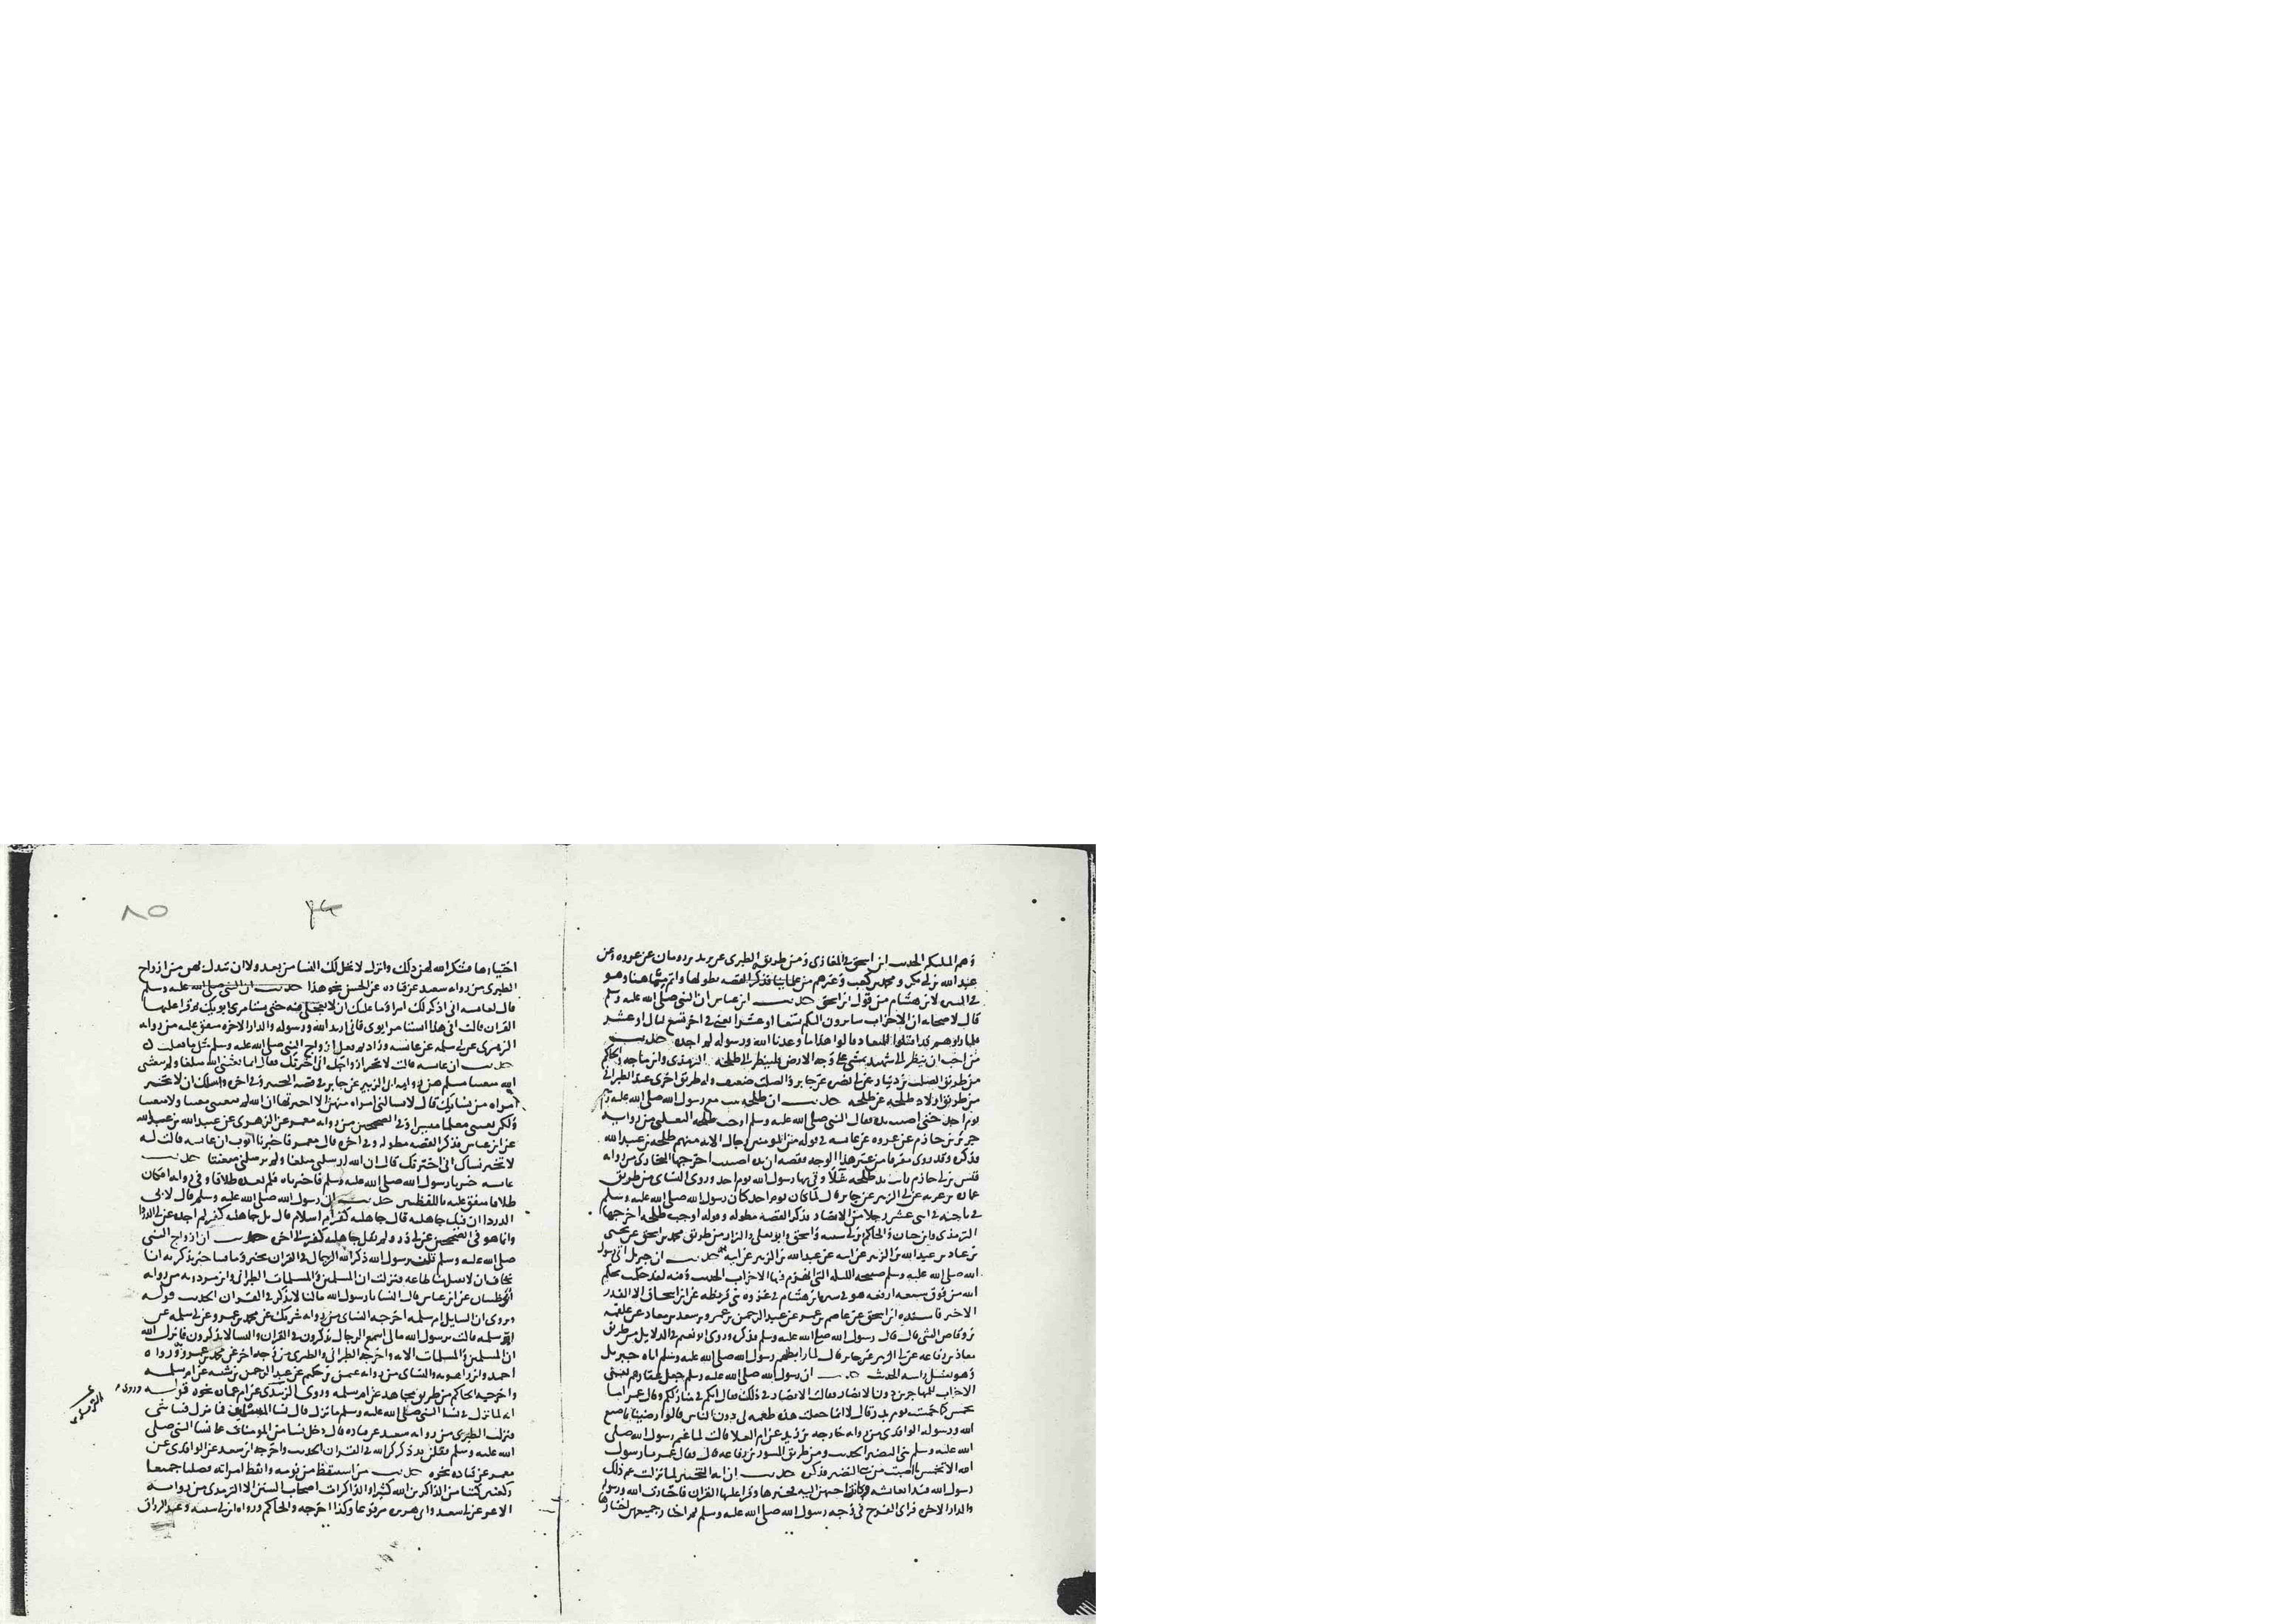 وهم الملتكم الحديث ابن اسحق في المغازي ومن طريقه الطبري عن يزيد بن رومان عن عروه وعن
عبد الله بن ابي بكر ومحمد بن كعب وغيرهم من علمائنا فذكر القصه بطولها واتم مما هنا وهو
في السيره لابن هشام من قول ابن اسحق حديث ابن عباس ان النبي صلى الله عليه وسلم
قال لاصحابه ان الاحزاب سايرون اليكم تسعا او عشرا يعني في اخر تسع ليال او عشر
فلما راوهم قد اقبلوا للميعاد قالوا هذا ما وعدنا الله ورسوله لم اجده حديث
من احب ان ينظر الى شهيد يمشي على وجه الارض فلينظر الى طلحه الترمذي وابن ماجه والحاكم
من طريق الصلت بن دينار عن ابي نضره عن جابر والصلت ضعيف وله طريق اخرى عند الطبراني
من طريق اولاد طلحه عن طلحه حديث ان طلحه ثبت مع رسول الله صلى الله عليه وسلم
يوم احد حتى اصيبت يده فقال النبي صلى الله عليه وسلم اوجب طلحه الثعلبي من روايه
جرير بن حازم عن عروه عن عايشه في قوله من المؤمنين رجال الايه منهم طلحه بن عبيد الله
فذكره وقد روى مفرقا من غير هذا الوجه فقصه ان يده اصيبت اخرجها البخاري من روايه
قيس بن ابي حازم رايت يد طلحه شلا وقى بها رسول الله يوم احد وروى النساي من طريق
عماره بن غزيه عن ابي الزبير عن جابر قال لما كان يوم احد كان رسول الله صلى الله عليه وسلم
في ناحيه في اثنى عشر رجلا من الانصار فذكر القصه مطوله وقوله اوجب طلحه اخرجها
الترمذي وابن حبان والحاكم وابن ابي شيبه واسحق وابو يعلى والبزار من طريق محمد بن اسحق عن يحيى
بن عباد بن عبد الله بن الزبير عن ابيه عن عبد الله بن الزبير عن ابيه حديث ان جبريل اتى رسول
الله صلى الله عليه وسلم صبيحه الليله التي انهزم فيها الاحزاب الحديث وفيه لقد حكمت بحكم
الله من فوق سبعه ارقعه هو في سيره ابن هشام في غزوه بني قريظه عن ابن اسحاق الا القدر
الاخير فاسنده ابن اسحق عن عاصم بن عمر عن عبد الرحمن بن عمرو بن سعد بن معاذ عن علقمه
بن وقاص الليثي قال قال رسول الله صلى الله عليه وسلم فذكره وروى ابو نعيم في الدلايل من طريق
معاذ بن رفاعه عن ابي الزبير عن جابر قال لما رابطهم رسول الله صلى الله عليه وسلم اتاه جبريل
وهو يغسل راسه الحديث حديث ان رسول الله صلى الله عليه وسلم جعل عقارهم يعني
الاحزاب للمهاجرين دون الانصار فقالت الانصار في ذلك فقال انكم في منازلكم وقال عمر اما
تخمس كما خمست يوم بدر قال لا انما جعلت هذه طعمه لي دون الناس قالوا رضينا بما صنع
الله ورسوله الواقدي من روايه خارجه بن زيد عن ام العلا قالت لما غنم رسول الله صلى
الله عليه وسلم بني النضير الحديث ومن طريق المسور بن رفاعه قال فقال عمر يا رسول
الله الا تخمس ما اصبت من بني النضير فذكره حديث ان ايه التخيير لما نزلت غم ذلك
رسول الله فبدا بعايشه وكانت احبهن اليه فخيرها وقرا عليها القران فاختارت الله ورسوله
والدار الاخره فراى الفرح في وجه رسول الله صلى الله عليه وسلم ثم اختار جميعهن اختيارها
٨٥
اختيارها فشكر الله لهن ذلك وانزل لا تحل لك النسا من بعد ولا ان تبدل بهن من ازواج
الطبري من روايه سعيد عن قتاده عن الحسن نحو هذا حديث ان النبي صلى الله عليه وسلم
قال لعايشه اني اذكر لك امرا وما عليك ان لا تعجلي فيه حتى تستامري ابويك ثم قرا عليها
القران فقالت افي هذا استامر ابوي فاني اريد الله ورسوله والدار الاخره متفق عليه من روايه
الزهري عن ابي سلمه عن عايشه وزاد ثم فعل ازواج النبي صلى الله عليه وسلم مثل ما فعلت
حديث ان عايشه قالت لا تخبر ازواجك اني اخترتك فقال انما بعثني الله مبلغا ولم يبعثني
الله متعنتا مسلم من روايه ابي الزبير عن جابر في قصه التخيير وفي اخره واسلك ان لا تخبر
امراه من نسايك قال لا تسالني امراه منهن الا اخبرتها ان الله لم يبعثني معنتا ولا متعنتا
ولكن بعثني معلما ميسرا وفي الصحيحين من روايه معمر عن الزهري عن عبيد الله بن عبد الله
عن ابن عباس فذكر القصه مطوله وفي اخره قال معمر فاخبرنا ايوب ان عايشه قالت له
لا تخبر نساك اني اخترتك قال ان الله ارسلني مبلغا ولم يرسلني متعنتا حديث
عايشه خيرنا رسول الله صلى الله عليه وسلم فاخترناه فلم نعده طلاقا وفي روايه افكان
طلاقا متفق عليه باللفظين حديث ان رسول الله صلى الله عليه وسلم قال لابي
الدردا ان فيك جاهليه قال جاهليه كفر ام اسلام قال بل جاهليه كفر لم اجده عن ابي الدردا
وانما هو في الصحيحين عن ابي ذر ولم يقل جاهليه كفر الى اخره حديث ان ازواج النبي
صلى الله عليه وسلم قلن يا رسول الله ذكر الله الرجال في القران بخير وما فينا خير نذكر به انا
نخاف ان لا تقبل منا طاعه فنزلت ان المسلمين والمسلمات الطبراني وابن مردويه من روايه
ابي ظبيان عن ابن عباس قال قال النسا يا رسول الله ما لنا لا نذكر في القران الحديث قوله
وروي ان السايل ام سلمه اخرجه النساي من روايه شريك عن محمد بن عمرو عن ابي سلمه عن
ام سلمه قالت يا رسول الله ما لي اسمع الرجال يذكرون في القران والنسا لا يذكرون فانزل الله
ان المسلمين والمسلمات الايه واخرجه الطبراني والطبري من وجه اخر عن محمد بن عمرو ورواه
احمد وابن راهويه والنساي من روايه عثمن بن حكيم عن عبد الرحمن بن شيبه عن ام سلمه
واخرجه الحاكم من طريق مجاهد عن ام سلمه وروى الترمذي عن ام عماره نحوه قوله وروي
انه لما نزل في نسا النبي صلى الله عليه وسلم ما نزل قال نسا المسلمين فما نزل فينا شي
فنزلت الطبري من روايه سعيد عن قتاده قال دخل نسا من المومنات على نسا النبي صلى
الله عليه وسلم فقلن قد ذكركن الله في القران الحديث واخرجه ابن سعد عن الواقدي عن
معمر عن قتاده نحوه حديث من استيقظ من نومه وايقظ امراته فصليا جميعا
ركعتين كتبا من الذاكرين الله كثيرا والذاكرات اصحاب السنن الا الترمذي من روايه
الاغر عن ابي سعيد وابي هريره مرفوعا وكذا اخرجه والحاكم ورواه ابن ابي شيبه وعبد الرزاق